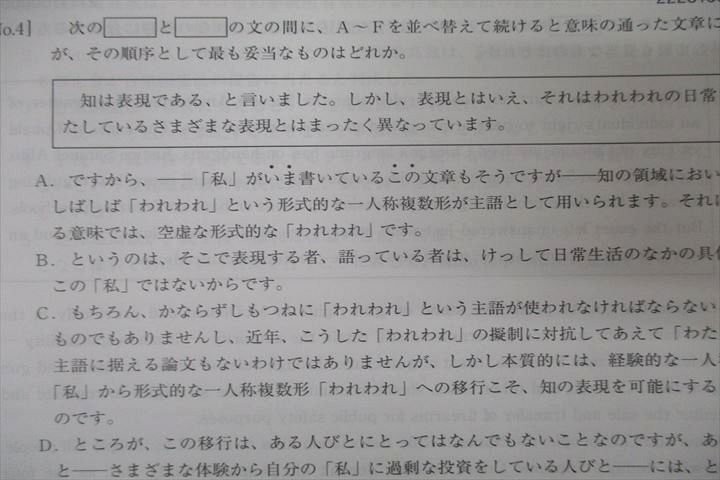 No.4］ 次の と の文の間に、A～Fを並べ替えて続けると意味の通った文章に
が、その順序として最も妥当なものはどれか。
知は表現である、と言いました。しかし、表現とはいえ、それはわれわれの日常
たしているさまざまな表現とはまったく異なっています。
A．ですから、――「私」がいま書いているこの文章もそうですが――知の領域におい
しばしば「われわれ」という形式的な一人称複数形が主語として用いられます。それは
る意味では、空虚な形式的な「われわれ」です。
B．というのは、そこで表現する者、語っている者は、けっして日常生活のなかの具体
この「私」ではないからです。
C．もちろん、かならずしもつねに「われわれ」という主語が使われなければならない
ものでもありませんし、近年、こうした「われわれ」の擬制に対抗してあえて「わた
主語に据える論文もないわけではありませんが、しかし本質的には、経験的な一人
「私」から形式的な一人称複数形「われわれ」への移行こそ、知の表現を可能にする
のです。
D．ところが、この移行は、ある人びとにとってはなんでもないことなのですが、あ
と――さまざまな体験から自分の「私」に過剰な投資をしている人びと――には、と